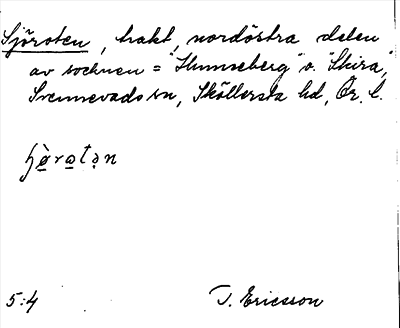 Sjöroten, trakt, nordöstra delen
av socknen = "Humseberg" o. "Skira",
Svennevads sn, Sköllersta hd, Ör. l.
5:4
T. Ericsson